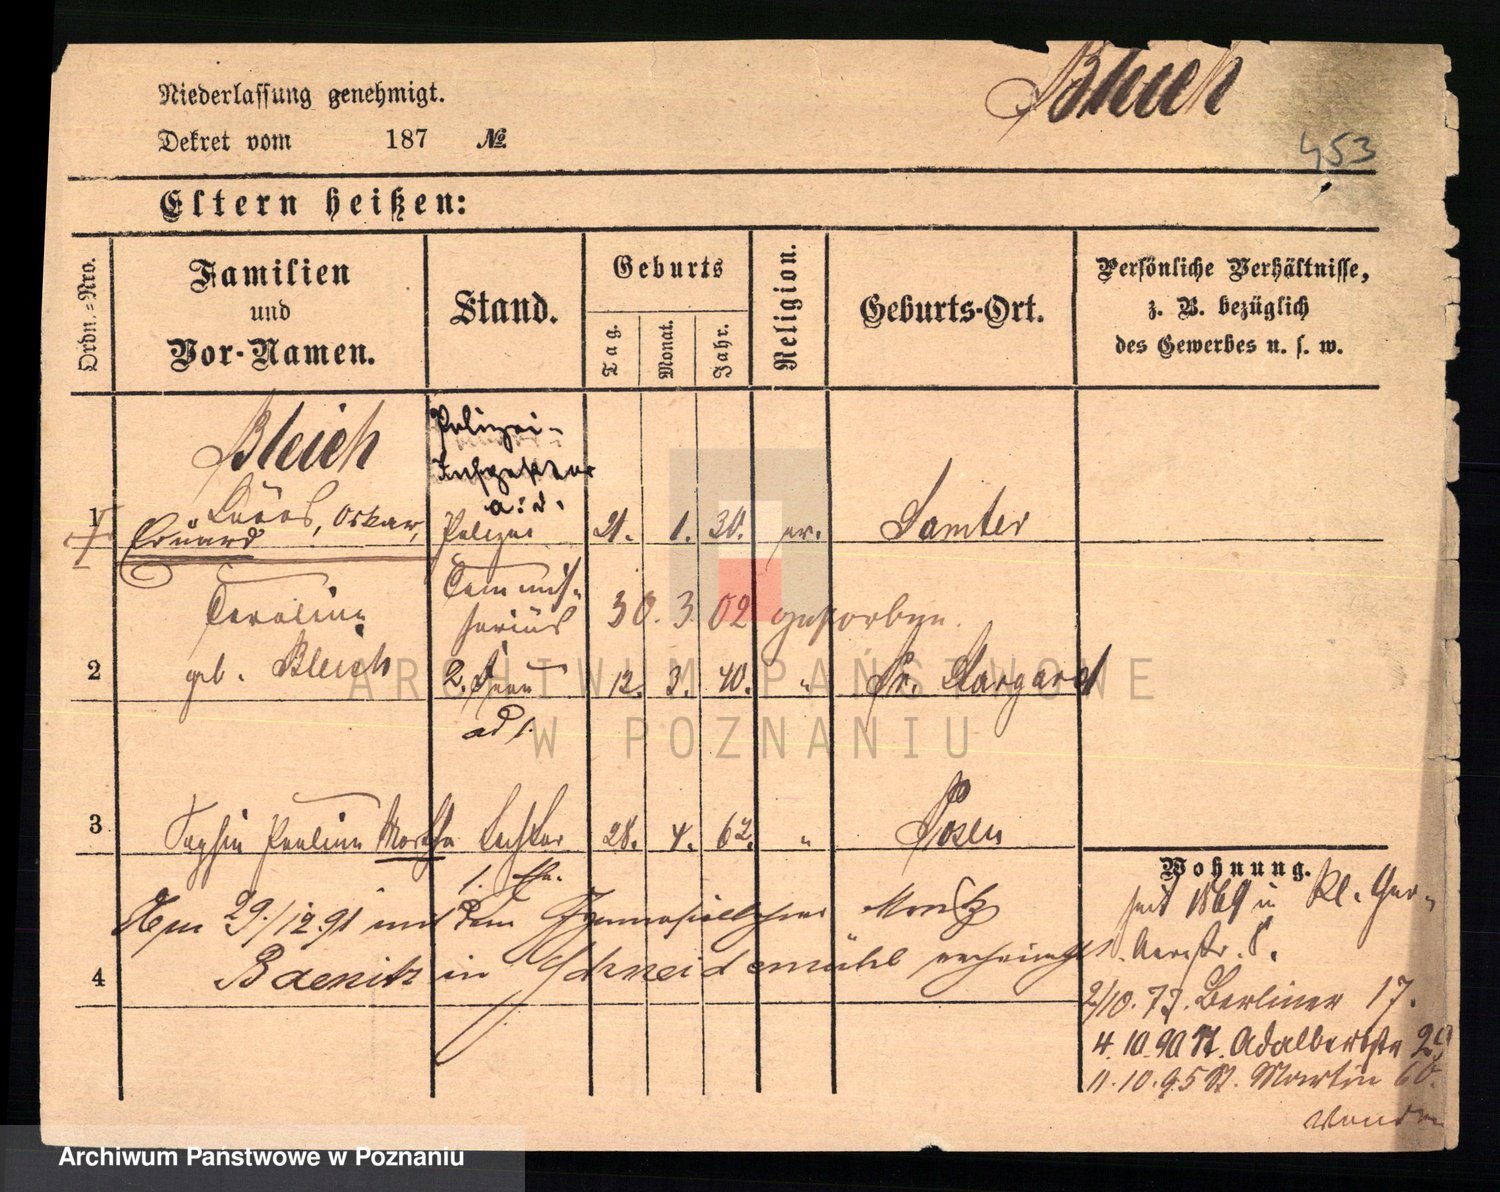 Niederlassung genehmigt.
Bleich
Dekret vom 187 №
453
Eltern heißen:
Ordn.-Nro.
Familien
und
Vor-Namen.
Stand.
Geburts
Tag.
Monat.
Jahr.
Religion.
Geburts-Ort.
Persönliche Verhältnisse,
z. B. bezüglich
des Gewerbes u. s. w.
Bleich
Polizei-
Inspektor
a. d.
1 Louis, Oskar, Polizei 21. 1. 30. ev. Samter
Eduard
Commis-
sarius
Caroline 30. 3. 02 gestorben.
2 geb. Bleich 2. Frau 12. 3. 40. " Pr. Stargard
ad 1.
3 Sophie Pauline Martha Tochter 28. 4. 62. " Posen
1. Ehe.
Wohnung.
seit 1869 in Kl. Ger-
berstr. 8.
2/10. 77. Berliner 17.
4. 10. 90 St. Adalbertstr 25
11. 10. 95 St. Martin 60.
Wenden
Am 29./12.91 mit dem Gymnasiallehrer Moritz
4 Baenitz in Schneidemühl verheiratet.
ARCHIWUM PAŃSTWOWE
W POZNANIU
Archiwum Państwowe w Poznaniu